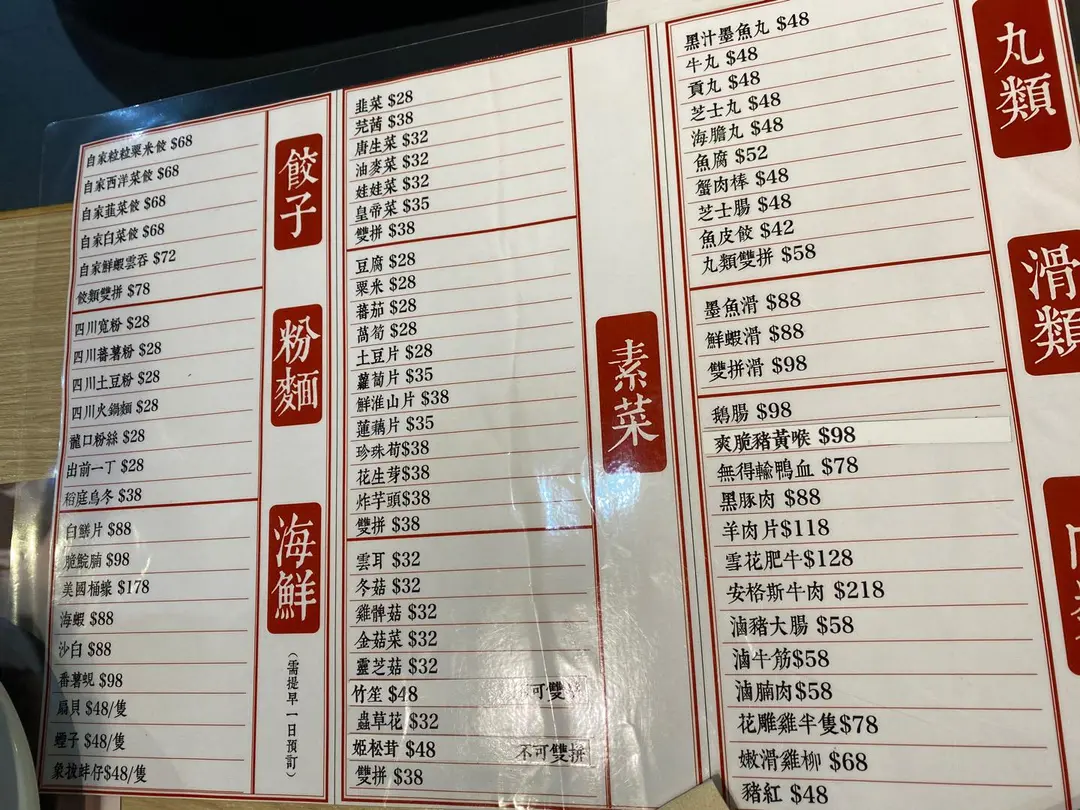 餃子
自家粒粒粟米餃 $68
自家西洋菜餃 $68
自家韮菜餃 $68
自家白菜餃 $68
自家鮮蝦雲吞 $72
餃類雙拼 $78
粉麵
四川寬粉 $28
四川蕃薯粉 $28
四川土豆粉 $28
四川火鍋麵 $28
龍口粉絲 $28
出前一丁 $28
稻庭烏冬 $38
海鮮
(需提早一日預訂)
白鱔片 $88
脆鯇腩 $98
美國桶蠔 $178
海蝦 $88
沙白 $88
番薯蜆 $98
扇貝 $48/隻
蟶子 $48/隻
象拔蚌仔$48/隻
素菜
韭菜 $28
芫茜 $38
唐生菜 $32
油麥菜 $32
娃娃菜 $32
皇帝菜 $35
雙拼 $38
豆腐 $28
粟米 $28
蕃茄 $28
萵筍 $28
土豆片 $28
蘿蔔片 $35
鮮淮山片 $38
蓮藕片 $35
珍珠荀$38
花生芽$38
炸芋頭$38
雙拼 $38
雲耳 $32
冬菇 $32
雞髀菇 $32
金菇菜 $32
靈芝菇 $32
竹笙 $48 可雙
蟲草花 $32
姬松茸 $48 不可雙拼
雙拼 $38
丸類
黑汁墨魚丸 $48
牛丸 $48
貢丸 $48
芝士丸 $48
海膽丸 $48
魚腐 $52
蟹肉棒 $48
芝士腸 $48
魚皮餃 $42
丸類雙拼 $58
滑類
墨魚滑 $88
鮮蝦滑 $88
雙拼滑 $98
鵝腸 $98
爽脆豬黃喉 $98
無得輸鴨血 $78
黑豚肉 $88
羊肉片$118
雪花肥牛$128
安格斯牛肉 $218
滷豬大腸 $58
滷牛筋$58
滷腩肉$58
花雕雞半隻$78
嫩滑雞柳 $68
豬紅 $48